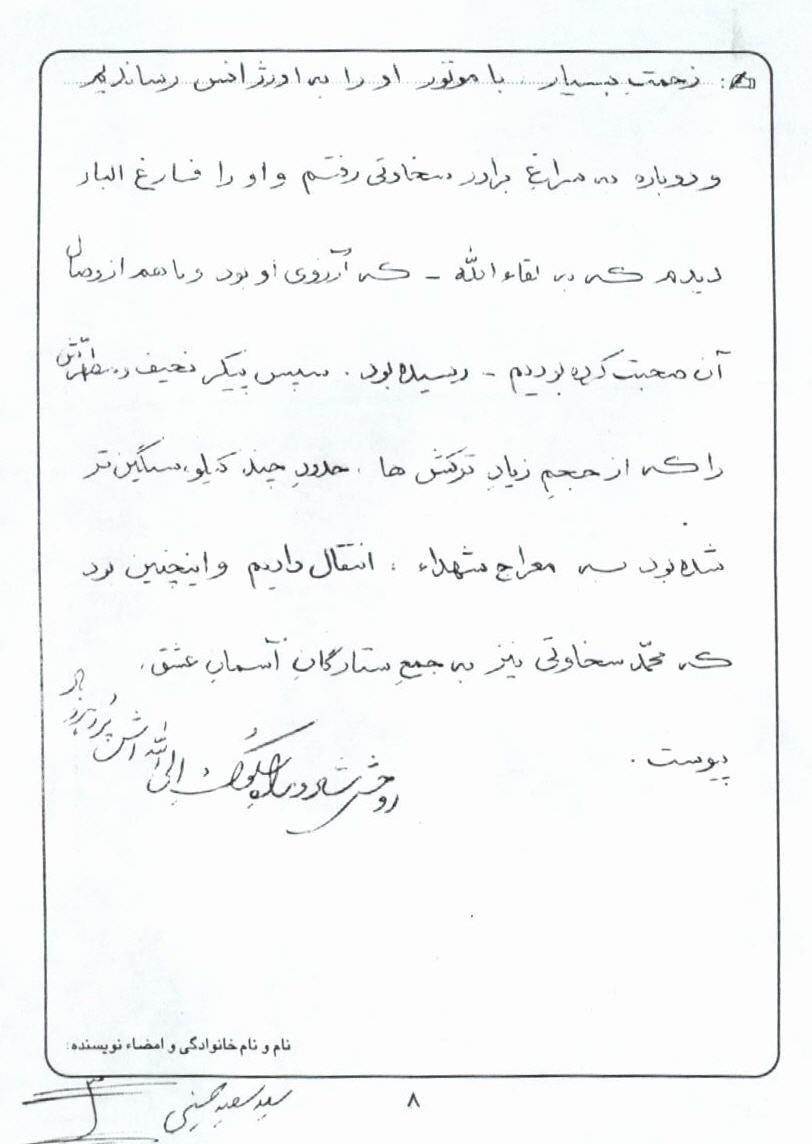 : زحمتِ بسیار، با موتور او را به اورژانس رساندیم
و دوباره به سراغِ برادر سخاوتی رفتم و او را فارغ البال
دیدم که به لقاءالله - که آرزوی او بود و ما هم از وصال
آن صحبت کرده بودیم - رسیده بود. سپس پیکر نحیف و مطهّرش
را که از حجمِ زیادِ ترکش ها، حدودِ چند کیلو، سنگین تر
شده بود به معراج شهداء، انتقال دادیم و اینچنین بود
که محمّد سخاوتی نیز به جمعِ ستارگانِ آسمانِ عشق،
پیوست.
روحش شاد و راه سلوک الی الله اش پُر رهرو باد
نام و نام خانوادگی و امضاء نویسنده:
سید سعید حسینی
۸